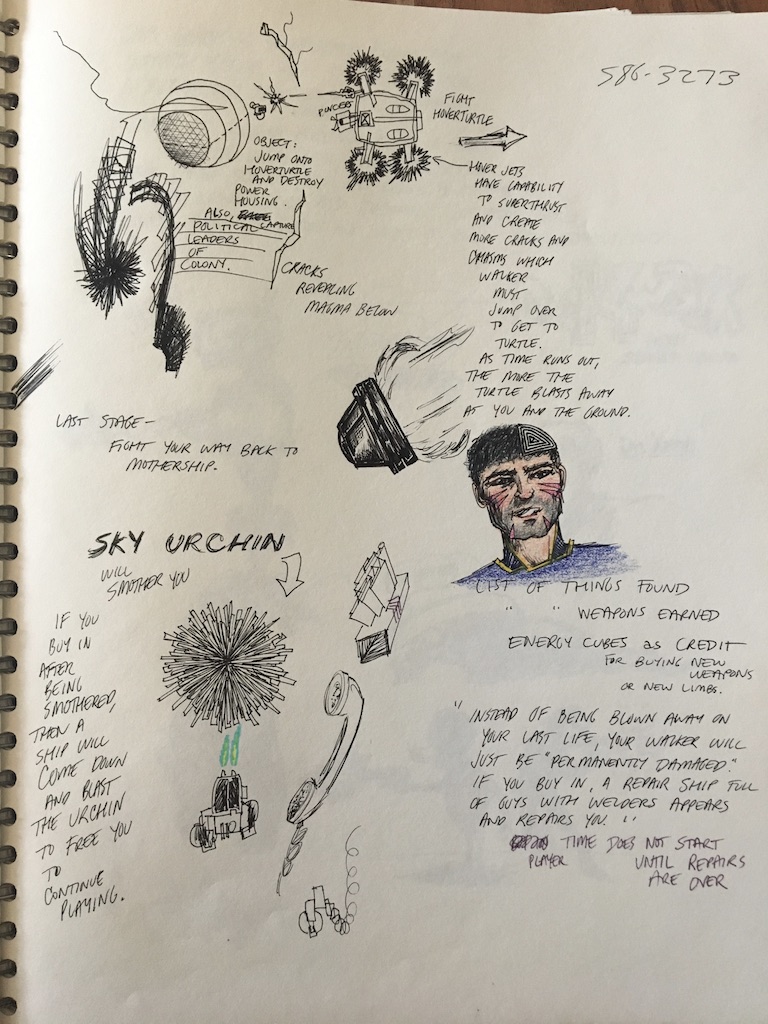 586-3273
PINCERS
FIGHT
HOVERTURTLE
OBJECT:
JUMP ONTO
HOVERTURTLE
AND DESTROY
POWER
HOUSING.
ALSO, CAPTURE
POLITICAL
LEADERS
OF
COLONY.
CRACKS
REVEALING
MAGMA BELOW
HOVER JETS
HAVE CAPABILITY
TO SUPERTHRUST
AND CREATE
MORE CRACKS AND
CHASMS WHICH
WALKER
MUST
JUMP OVER
TO GET TO
TURTLE.
AS TIME RUNS OUT,
THE MORE THE
TURTLE BLASTS AWAY
AT YOU AND THE GROUND.
LAST STAGE-
FIGHT YOUR WAY BACK TO
MOTHERSHIP.
SKY URCHIN
WILL
SMOTHER YOU
IF YOU
BUY IN
AFTER
BEING
SMOTHERED,
THEN A
SHIP WILL
COME DOWN
AND BLAST
THE URCHIN
TO FREE YOU
TO
CONTINUE
PLAYING.
LIST OF THINGS FOUND
" " WEAPONS EARNED
ENERGY CUBES as CREDIT
FOR BUYING NEW
WEAPONS
OR NEW LIMBS.
"INSTEAD OF BEING BLOWN AWAY ON
YOUR LAST LIFE, YOUR WALKER WILL
JUST BE "PERMANENTLY DAMAGED."
IF YOU BUY IN, A REPAIR SHIP FULL
OF GUYS WITH WELDERS APPEARS
AND REPAIRS YOU. "
TIME DOES NOT START
PLAYER UNTIL REPAIRS
ARE OVER